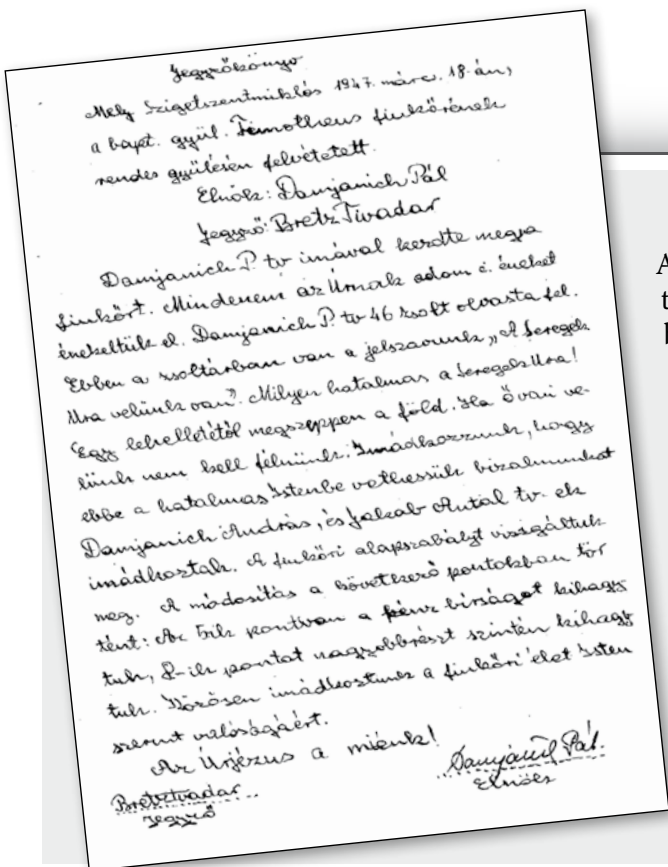 Jegyzőkönyv
Mely Szigetszentmiklós 1947. márc. 18-án,
a bapt. gyül. Timotheus fiukörének
rendes gyülésén felvétetett.
Elnök: Damjanich Pál
Jegyző: Bretz Tivadar
Damjanich P. tv imával kezdte meg a
fiukört. Mindenem az Úrnak adom c. éneket
énekeltük el. Damjanich P. tv 46 zsolt olvasta fel.
Ebben a zsoltárban van a jelszavunk „A Seregek
Ura velünk van". Milyen hatalmas a Seregek Ura!
Egy lehelletétől megszeppen a föld. Ha Ő van ve-
lünk nem kell félnünk. Imádkozzunk, hogy
ebbe a hatalmas Istenbe vethessük bizalmunkat
Damjanich András, és Jakab Antal tv. ek
imádkoztak. A fiuköri alapszabályt vizsgáltuk
meg. A módosítás a következő pontokban tör
tént: Az 5ik pontvan a pénz birságot kihagy
tuk, 8-ik pontot nagyobbrészt szintén kihagy
tuk. Közösen imádkoztunk a fiuköri élet Isten
szerint valóságáért.
Az Úrjézus a miénk!
Bretz Tivadar
Jegyző
Damjanich Pál.
Elnök
A
t